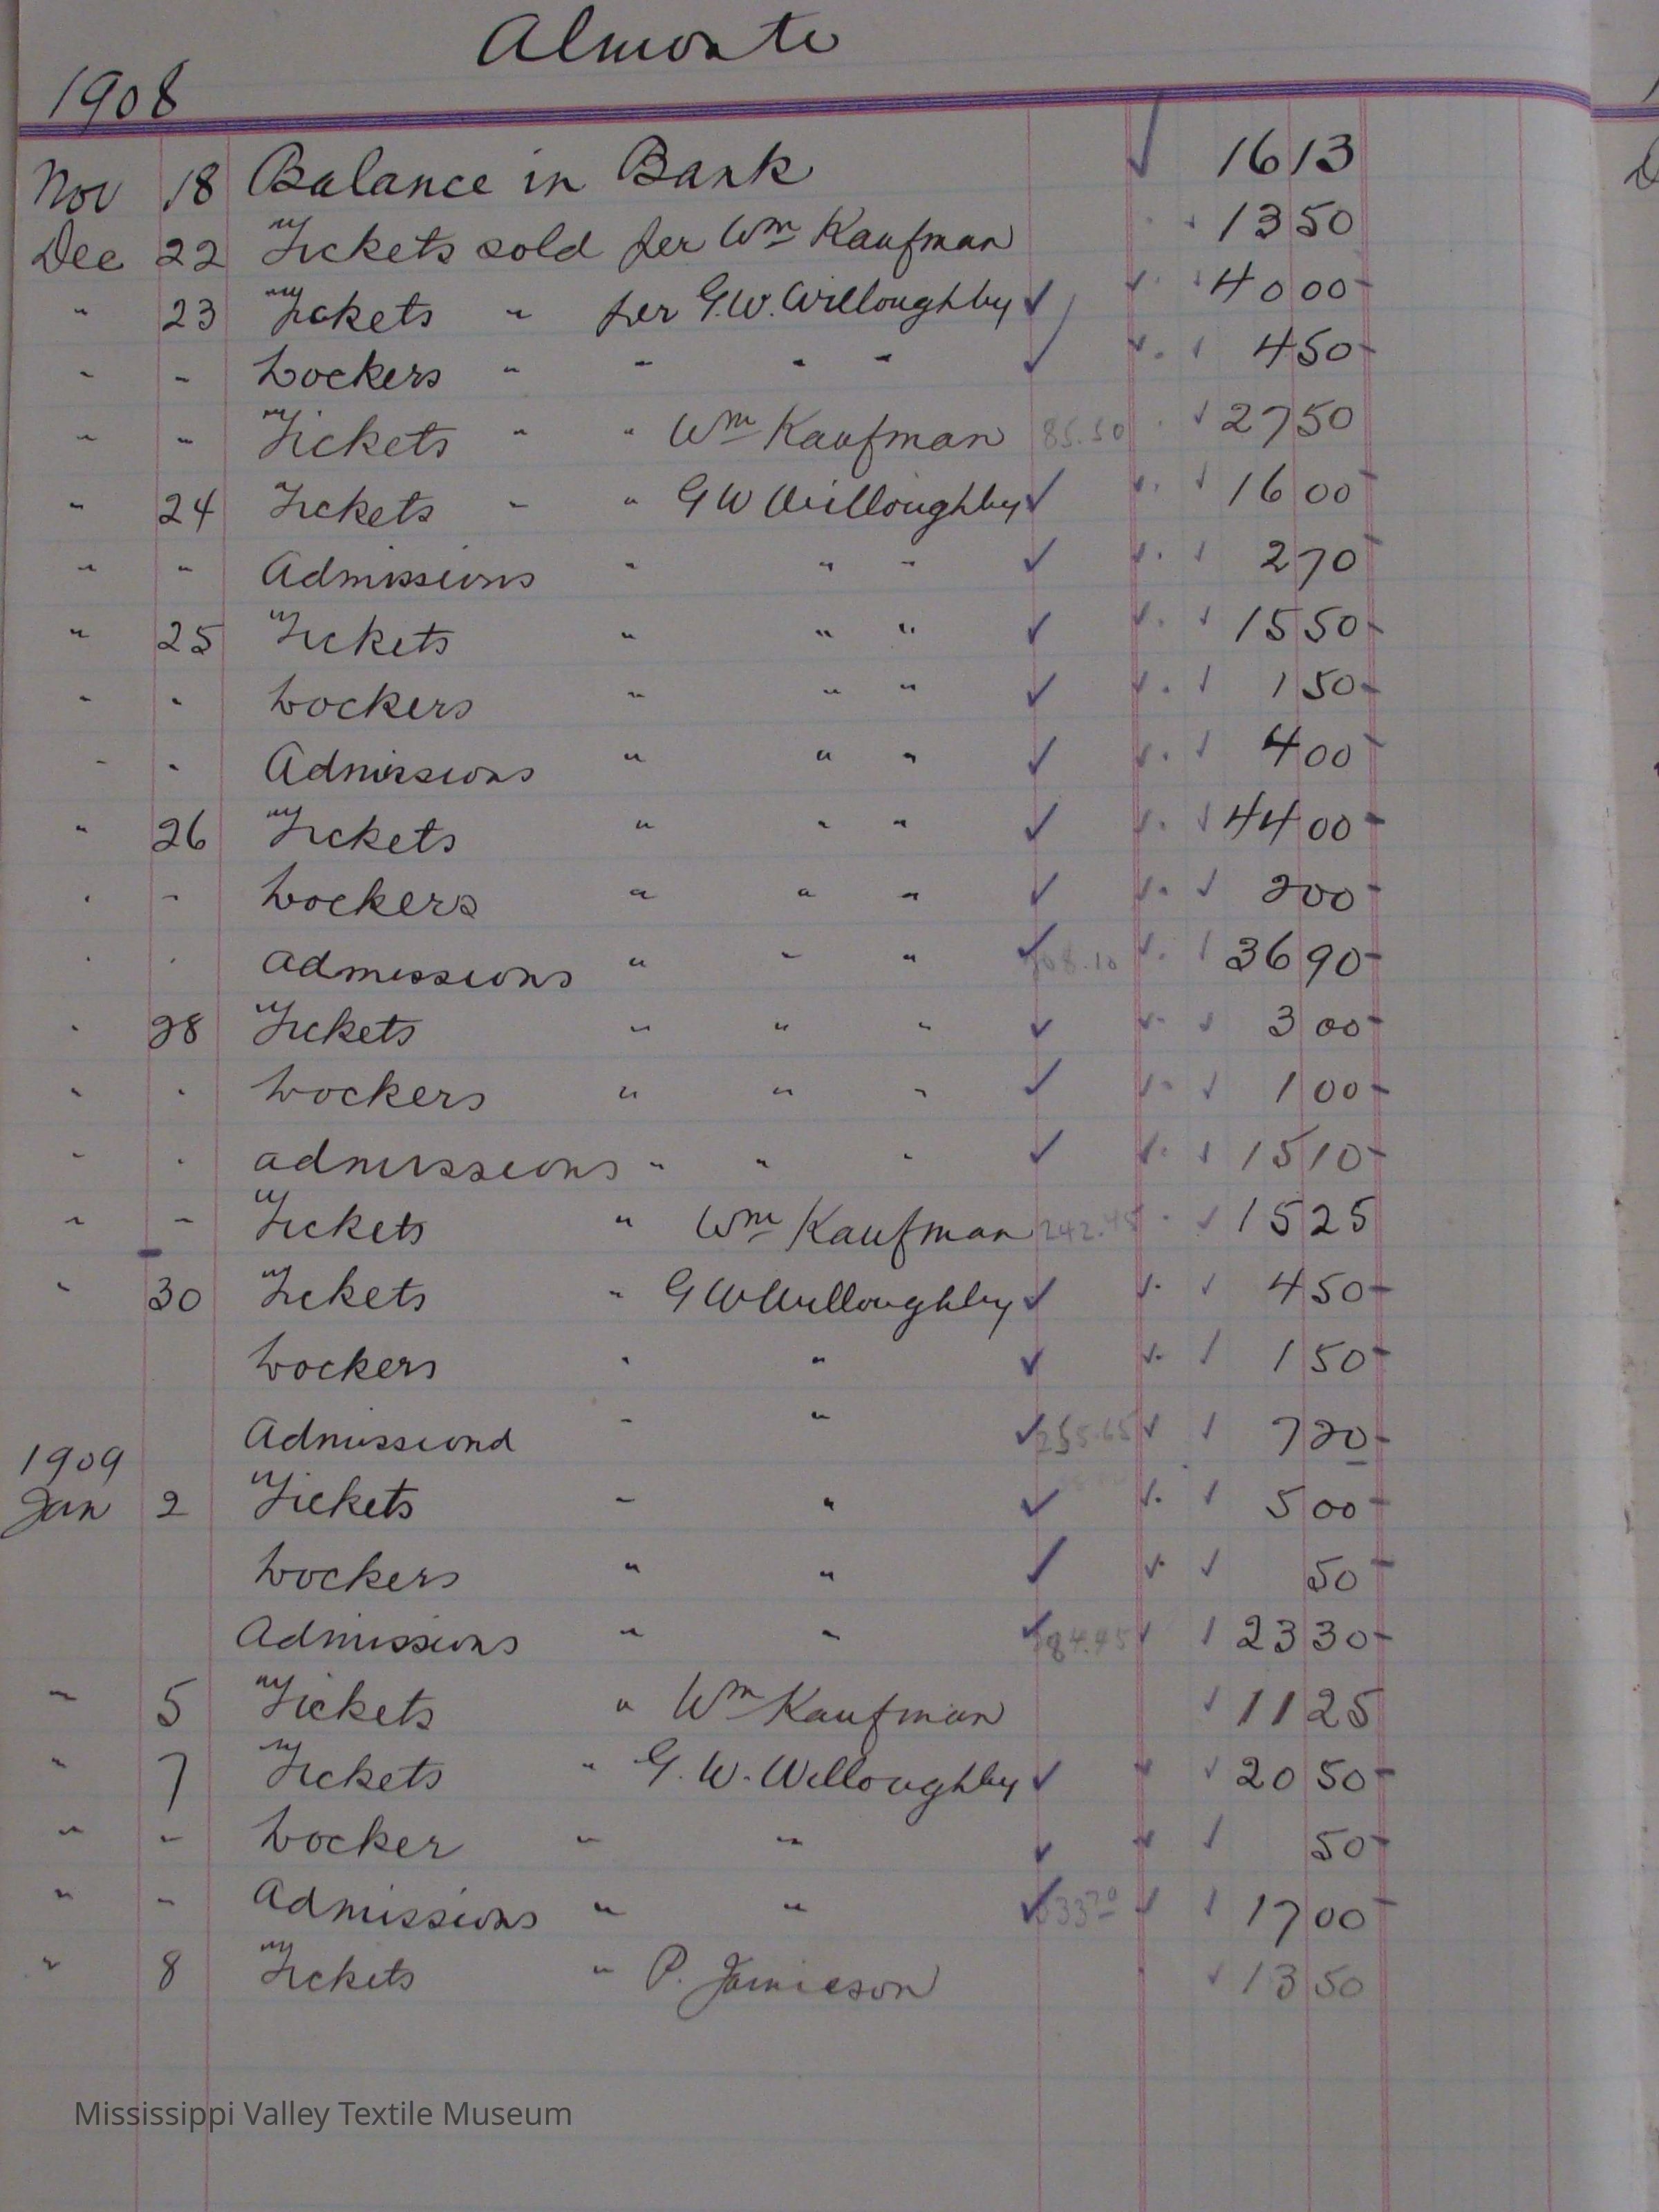 Almonte
1908
Nov 18 Balance in Bank ✓ 16 13
Dec 22 Tickets sold per Wm Kaufman 13 50
" 23 Tickets " per G.W. Willoughby ✓ ✓ 40 00
" " Lockers " " " " ✓ ✓ ✓ 4 50
" " Tickets " " Wm Kaufman 85.50 ✓ 27 50
" 24 Tickets " " G W Willoughby ✓ ✓ ✓ 16 00
" " Admissions " " " ✓ ✓ ✓ 2 70
" 25 Tickets " " " ✓ ✓ ✓ 15 50
" " Lockers " " " ✓ ✓ ✓ 1 50
" " Admissions " " " ✓ ✓ ✓ 4 00
" 26 Tickets " " " ✓ ✓ ✓ 44 00
" " Lockers " " " ✓ ✓ ✓ 2 00
" " admissions " " " ✓ ✓ ✓ 36 90
" 28 Tickets " " " ✓ ✓ ✓ 3 00
" " Lockers " " " ✓ ✓ ✓ 1 00
" " admissions " " " ✓ ✓ ✓ 15 10
" " Tickets " Wm Kaufman 242.45 ✓ 15 25
" 30 Tickets " G W Willoughby ✓ ✓ ✓ 4 50
Lockers " " ✓ ✓ ✓ 1 50
Admissiond " " ✓ 255.65 ✓ ✓ 7 20
1909
Jan 2 Tickets " " ✓ ✓ ✓ 5 00
Lockers " " ✓ ✓ ✓ 50
Admissions " " ✓ ✓ ✓ 23 30
" 5 Tickets " Wm Kaufman ✓ 11 25
" 7 Tickets " G. W. Willoughby ✓ ✓ ✓ 20 50
" " Locker " " ✓ ✓ ✓ 50
" " Admissions " " ✓ ✓ ✓ 17 00
" 8 Tickets " P. Jamieson ✓ 13 50
Mississippi Valley Textile Museum